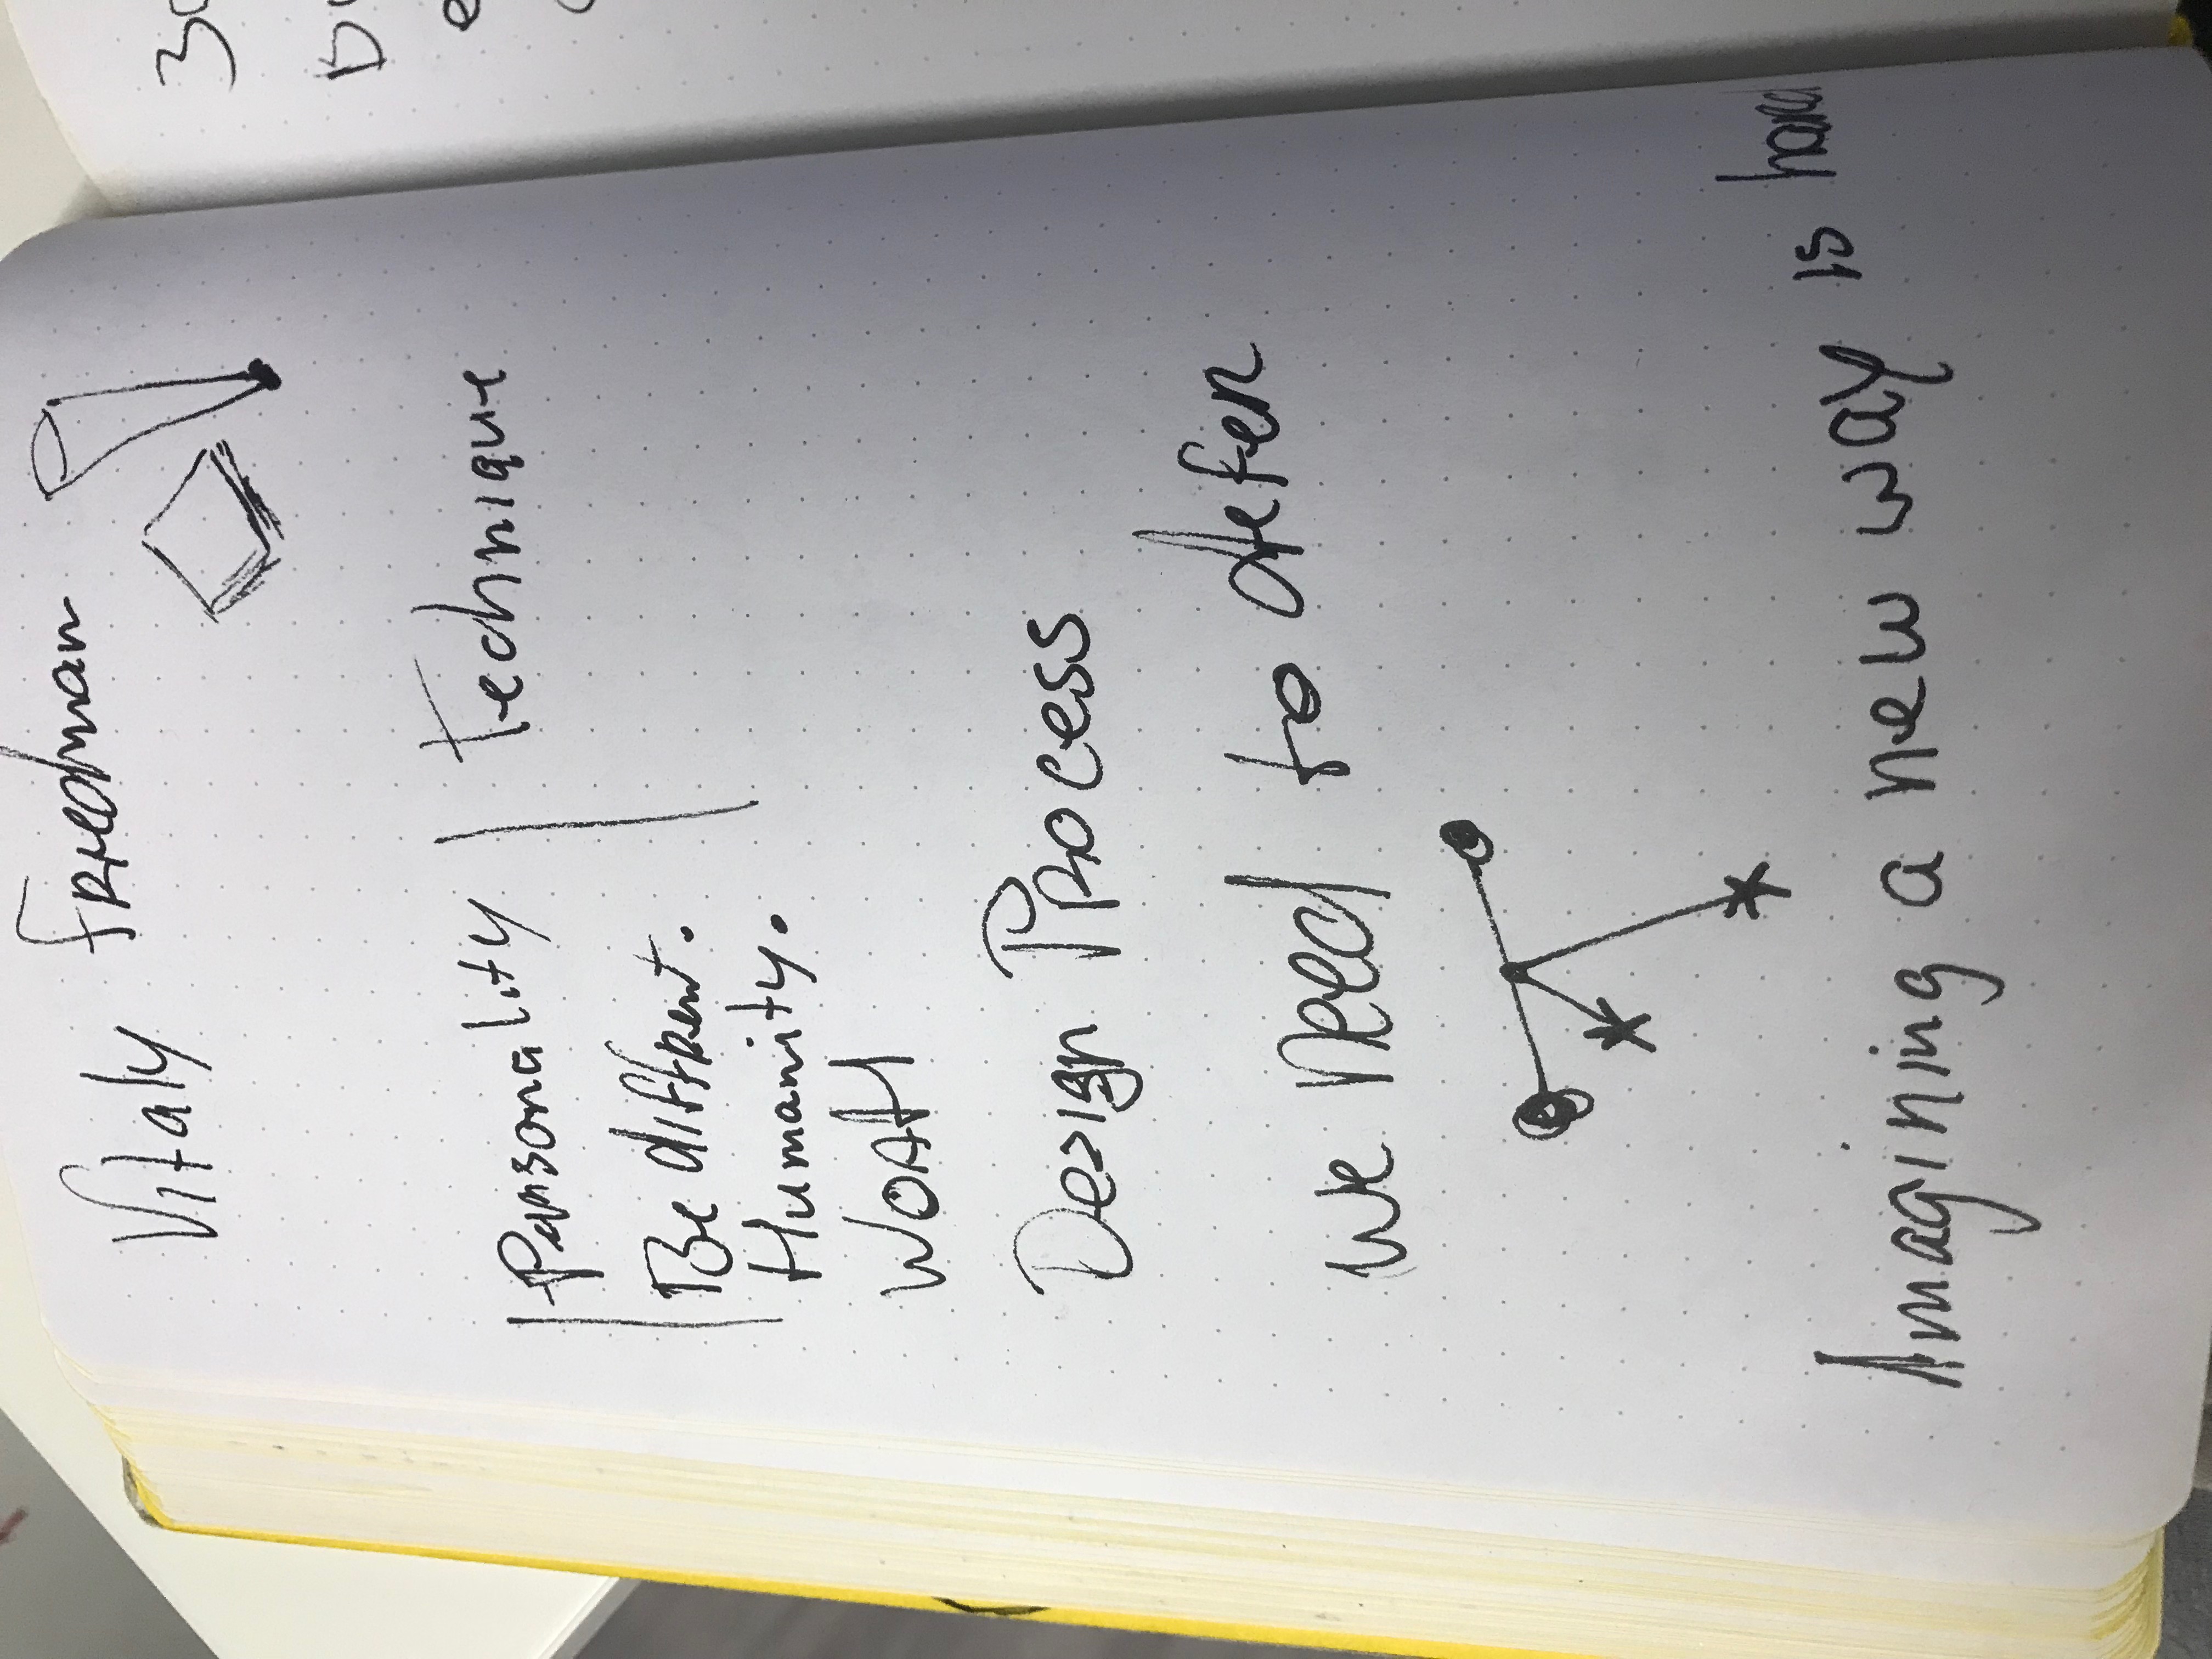 Vitaly Friedman
Personality
Technique
Be diffrent.
Humanity.
WOAH
Design Process
We need to defer
Imagining a new way is hard
30